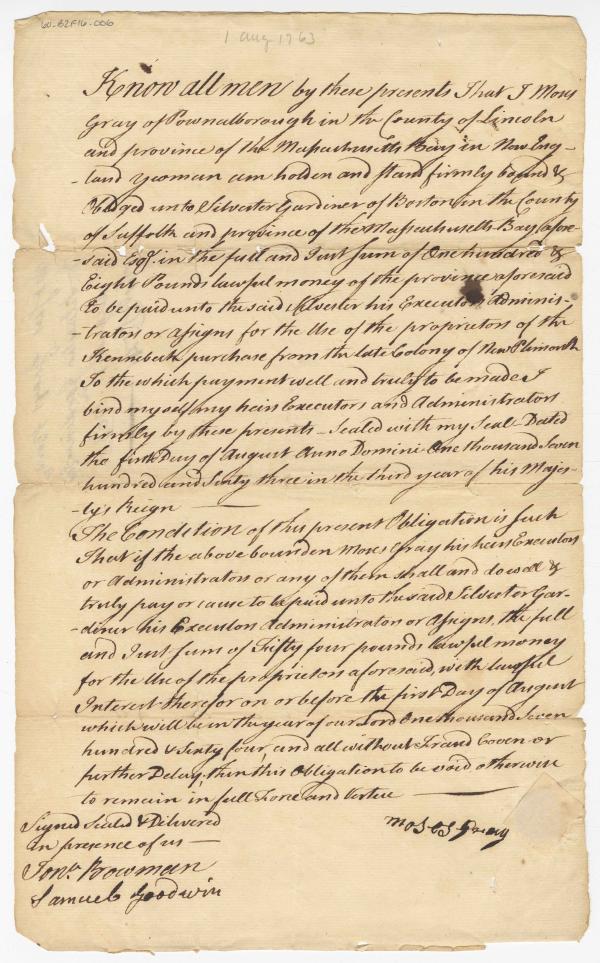 60-82F16-006
1 Aug 1763
Know all men by these presents That I Moses
Gray of Pownalborough in the County of Lincoln
and province of the Massachusetts Bay in New Eng-
-land yeoman am holden and stand firmly bound &
Obliged unto Silvester Gardiner of Boston in the County
of Suffolk and province of the Massachusetts Bay afore-
-said Esqr. in the full and Just Sum of One hundred &
Eight Pounds lawful money of the province aforesaid
To be paid unto the said Silvester his Executors Adminis-
-trators or Assigns for the Use of the proprietors of the
Kennebeck purchase from the late Colony of New Plimouth
To the which payment well and truly to be made I
bind myself my heirs Executors and Administrators
firmly by these presents - Sealed with my Seal - Dated
the first Day of August Anno Domini One thousand Seven
hundred and Sixty three in the third year of his Majes-
-ty's Reign
The Condition of this present Obligation is Such
That if the above bounden Moses Gray his heirs Executors
or Administrators or any of them shall and do well &
truly pay or cause to be paid unto the said Silvester Gar-
-diner his Executors Administrators or Assigns, the full
and Just Sum of Fifty four pounds lawful money
for the Use of the proprietors aforesaid, with lawful
Interest therefor on or before the first Day of August
which will be in the year of our Lord One thousand Seven
hundred & Sixty four, and all without Fraud Coven or
further Delay, then this Obligation to be void otherwise
to remain in full Force and Vertue
Signed Sealed & Delivered
in presence of us
Jona. Bowman
Samuel Goodwin
moses Gray